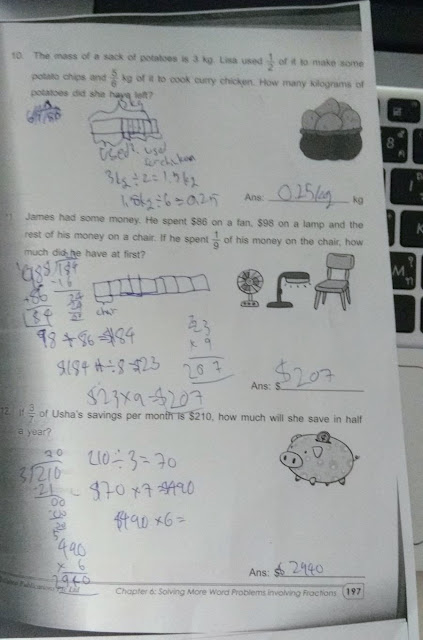 10. The mass of a sack of potatoes is 3 kg. Lisa used 1/2 of it to make some
potato chips and 5/6 kg of it to cook curry chicken. How many kilograms of
potatoes did she have left?
3kg
used
used
3kg ÷ 2 = 1.5kg
÷ 6 = 0.25
Ans: 0.25kg kg
James had some money. He spent $86 on a fan, $98 on a lamp and the
rest of his money on a chair. If he spent 1/9 of his money on the chair, how
much did he have at first?
chair
98 + 86 = $184
$184 ÷ 8 = $23
23
× 9
207
$23 × 9 = $207
Ans: $ $207
If 3/7 of Usha's savings per month is $210, how much will she save in half
a year?
70
3/210
21
00
00
210 ÷ 3 = 70
$70 × 7 = $490
$490 × 6 =
490
× 6
2940
Ans: $ 2940
Chapter 6: Solving More Word Problems Involving Fractions 197
8
K
M